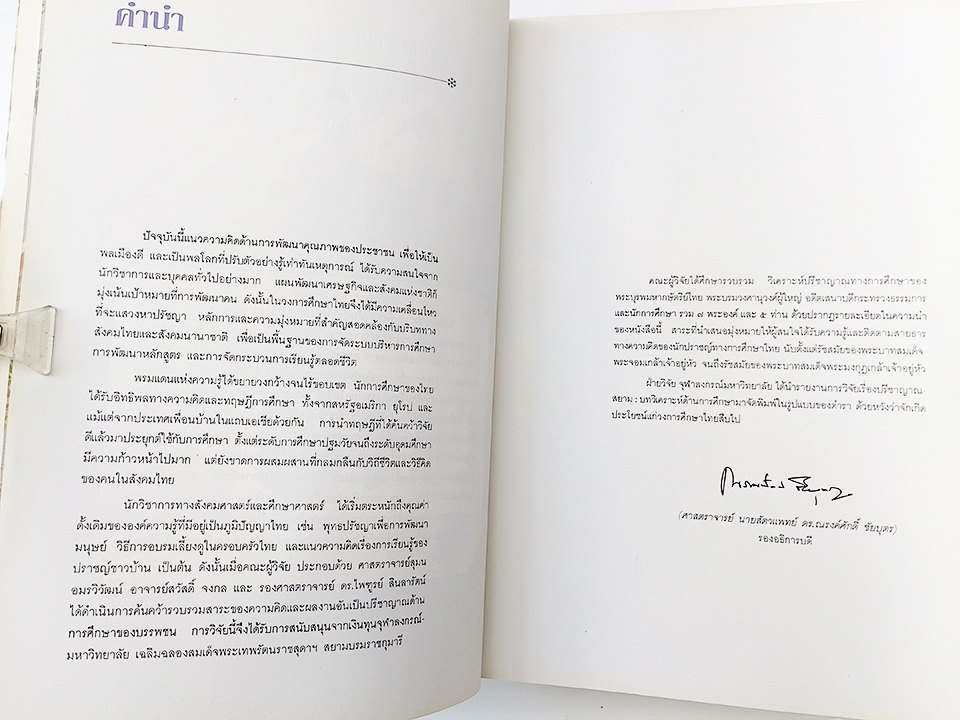 คำนำ
ปัจจุบันนี้แนวความคิดด้านการพัฒนาคุณภาพของประชาชน เพื่อให้เป็น
พลเมืองดี และเป็นพลโลกที่ปรับตัวอย่างรู้เท่าทันเหตุการณ์ ได้รับความสนใจจาก
นักวิชาการและบุคคลทั่วไปอย่างมาก แผนพัฒนาเศรษฐกิจและสังคมแห่งชาติก็
มุ่งเน้นเป้าหมายที่การพัฒนาคน ดังนั้นในวงการศึกษาไทยจึงได้มีความเคลื่อนไหว
ที่จะแสวงหาปรัชญา หลักการและความมุ่งหมายที่สำคัญสอดคล้องกับบริบททาง
สังคมไทยและสังคมนานาชาติ เพื่อเป็นพื้นฐานของการจัดระบบบริหารการศึกษา
การพัฒนาหลักสูตร และการจัดกระบวนการเรียนรู้ตลอดชีวิต
พรมแดนแห่งความรู้ได้ขยายวงกว้างจนไร้ขอบเขต นักการศึกษาของไทย
ได้รับอิทธิพลทางความคิดและทฤษฎีการศึกษา ทั้งจากสหรัฐอเมริกา ยุโรป และ
แม้แต่จากประเทศเพื่อนบ้านในแถบเอเชียด้วยกัน การนำทฤษฎีที่ได้ค้นคว้าวิจัย
ดีแล้วมาประยุกต์ใช้กับการศึกษา ตั้งแต่ระดับการศึกษาปฐมวัยจนถึงระดับอุดมศึกษา
มีความก้าวหน้าไปมาก แต่ยังขาดการผสมผสานที่กลมกลืนกับวิถีชีวิตและวิธีคิด
ของคนในสังคมไทย
นักวิชาการทางสังคมศาสตร์และศึกษาศาสตร์ ได้เริ่มตระหนักถึงคุณค่า
ดั้งเดิมขององค์ความรู้ที่มีอยู่เป็นภูมิปัญญาไทย เช่น พุทธปรัชญาเพื่อการพัฒนา
มนุษย์ วิธีการอบรมเลี้ยงดูในครอบครัวไทย และแนวความคิดเรื่องการเรียนรู้ของ
ปราชญ์ชาวบ้าน เป็นต้น ดังนั้นเมื่อคณะผู้วิจัย ประกอบด้วย ศาสตราจารย์สุมน
อมรวิวัฒน์ อาจารย์สวัสดิ์ จงกล และ รองศาสตราจารย์ ดร.ไพฑูรย์ สินลารัตน์
ได้ดำเนินการค้นคว้ารวบรวมสาระของความคิดและผลงานอันเป็นปรีชาญาณด้าน
การศึกษาของบรรพชน การวิจัยนี้จึงได้รับการสนับสนุนจากเงินทุนจุฬาลงกรณ์-
มหาวิทยาลัย เฉลิมฉลองสมเด็จพระเทพรัตนราชสุดาฯ สยามบรมราชกุมารี
คณะผู้วิจัยได้ศึกษารวบรวม วิเคราะห์ปรีชาญาณทางการศึกษาของ
พระบุรพมหากษัตริย์ไทย พระบรมวงศานุวงศ์ผู้ใหญ่ อดีตเสนาบดีกระทรวงธรรมการ
และนักการศึกษา รวม ๗ พระองค์ และ ๕ ท่าน ด้วยปรากฏรายละเอียดในความนำ
ของหนังสือนี้ สาระที่นำเสนอมุ่งหมายให้ผู้สนใจได้รับความรู้และติดตามสายธาร
ทางความคิดของนักปราชญ์ทางการศึกษาไทย นับตั้งแต่รัชสมัยของพระบาทสมเด็จ-
พระจอมเกล้าเจ้าอยู่หัว จนถึงรัชสมัยของพระบาทสมเด็จพระมงกุฎเกล้าเจ้าอยู่หัว
ฝ่ายวิจัย จุฬาลงกรณ์มหาวิทยาลัย ได้นำรายงานการวิจัยเรื่องปรีชาญาณ-
สยาม : บทวิเคราะห์ด้านการศึกษามาจัดพิมพ์ในรูปแบบของตำรา ด้วยหวังว่าจักเกิด
ประโยชน์แก่วงการศึกษาไทยสืบไป
(ศาสตราจารย์ นายสัตวแพทย์ ดร.ณรงค์ศักดิ์ ชัยบุตร)
รองอธิการบดี